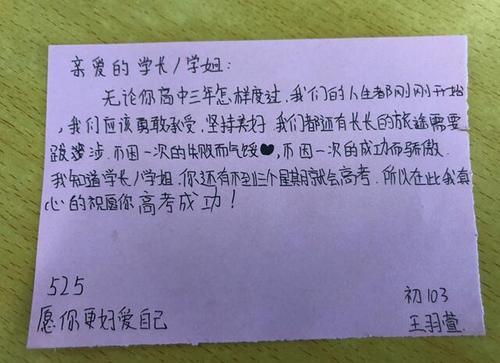 亲爱的学长/学姐:
无论你高中三年怎样度过,我们的人生都刚刚开始
,我们应该勇敢承受,坚持美好,我们都还有长长的旅途需要
跋涉,不因一次的失败而气馁,不因一次的成功而骄傲.
我知道学长/学姐,你还有不到三个星期就会高考.所以在此我真
心的祝愿你高考成功!
525
初103
愿你更好爱自己
王羽萱